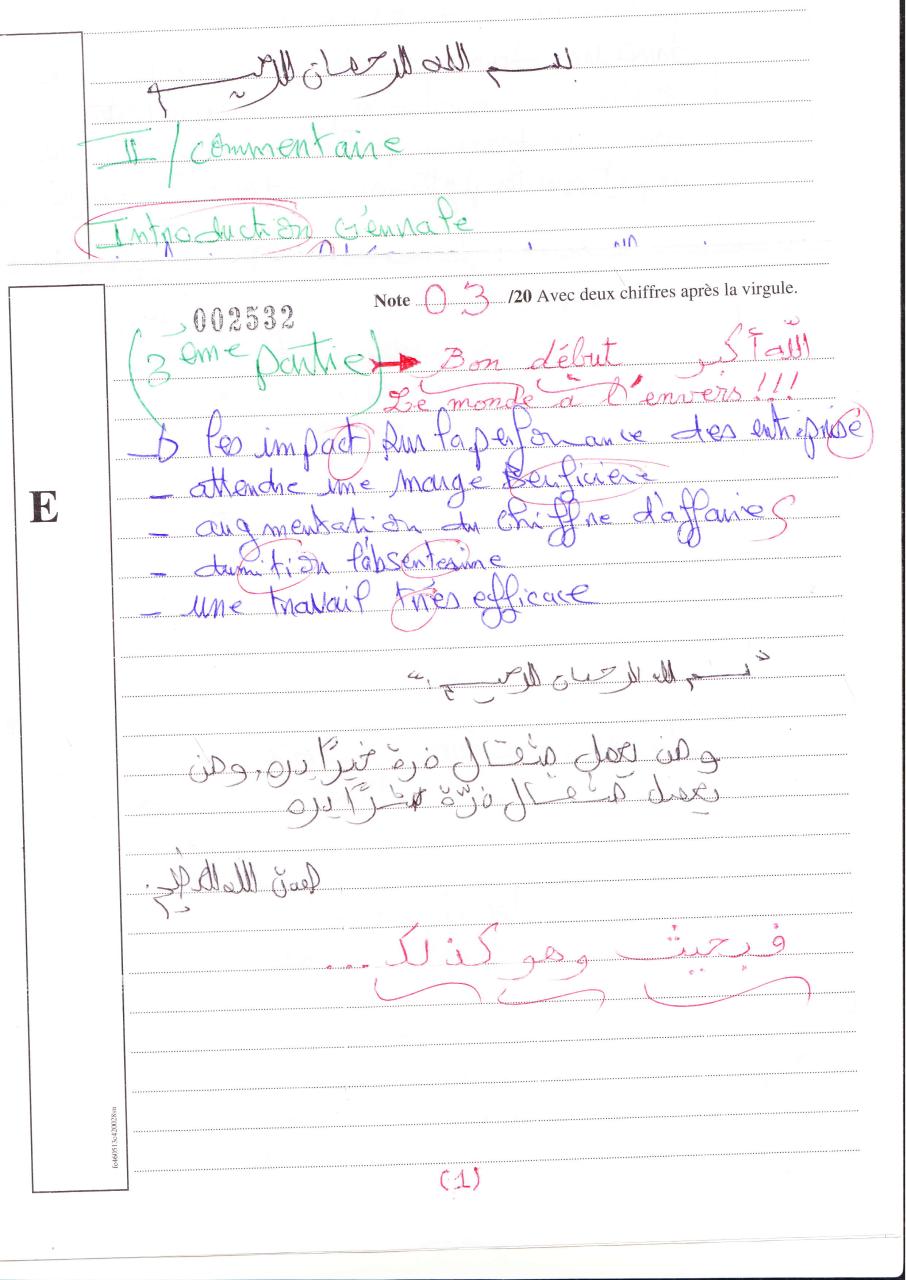 بسم الله الرحمان الرحيم
II / Commentaire
Introduction Génnale
002532
Note 03 /20 Avec deux chiffres après la virgule.
(3ème partie) Bon début الله أكبر
Le monde à l'envers !!!
les impact sur la perfonmance des entrepise
E
- attendre une mange Benificiere
- augmentation du chiffre d'affaires
- dumition l'absentesime
- une travail très efficace
"بسم لله الرحمان الرحيم"
ومن يعمل مثقال ذرة خيرًا يره، ومن
يعمل مثقال ذرّة شرًّا يره
صدق الله العظيم
فبحيث وهو كذلك ....
fc460513c420028m
(1)